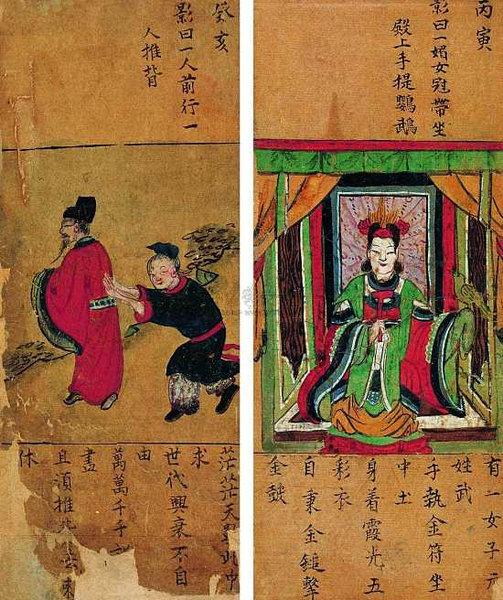 丙寅
影曰一媚女冠帶坐
殿上手提鸚鵡
有一女子元
姓武
手執金符坐
中土
身着霞光五
彩衣
自秉金鎚擊
金鼓
癸亥
影曰一人前行一
人推背
茫茫天此中
求
世代興衰不自
由
萬萬千千
盡
且須推來
休